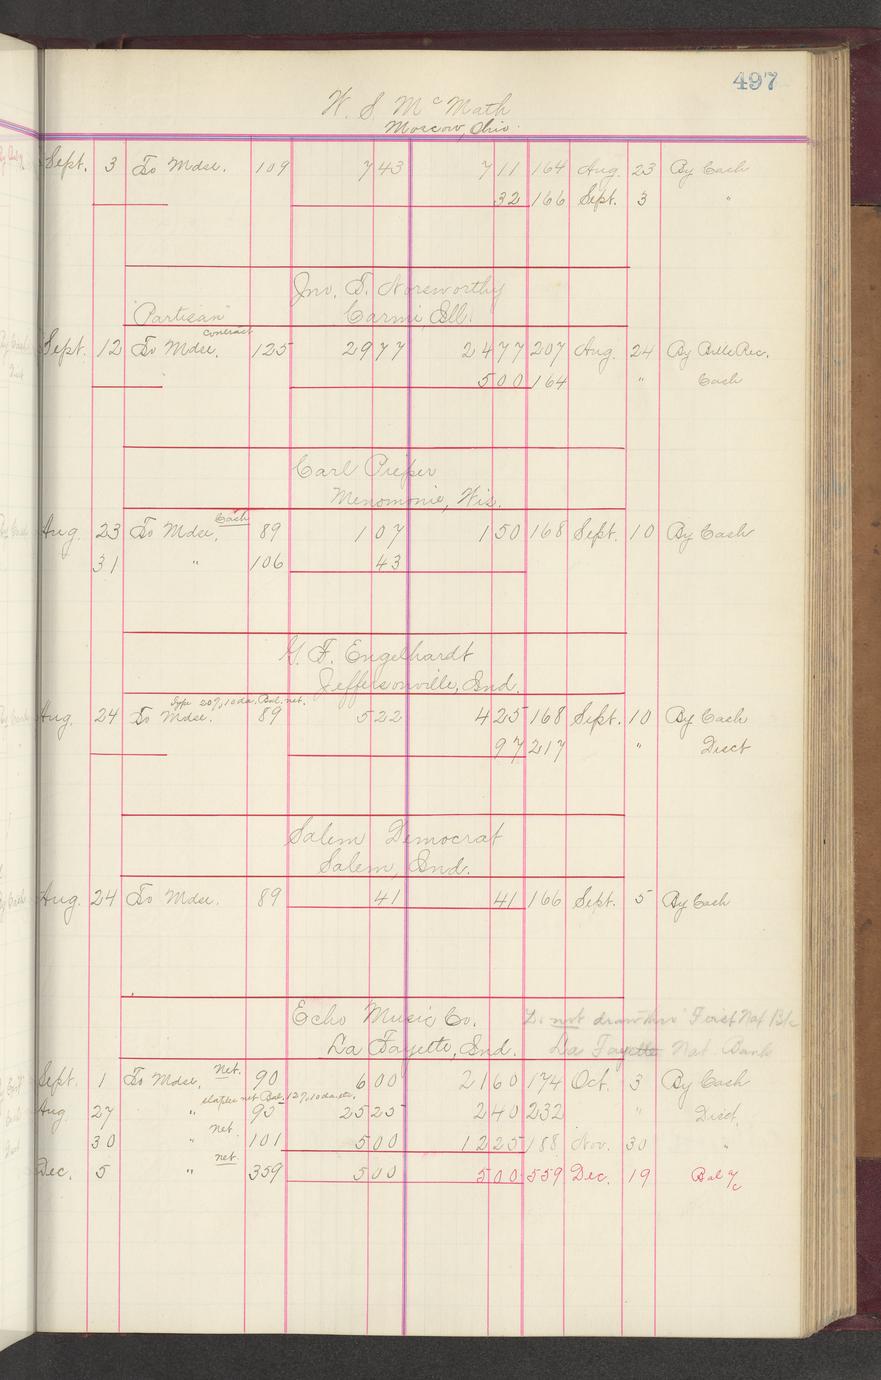 497
W. S. McMath
Moscow, Ohio.
Sept. 3 To Mdse. 109 7 43 7 11 164 Aug. 23 By Cash
32 166 Sept. 3 "
Jno. T. Norsworthy
"Partisan" Carmi, Ill.
contract
Sept. 12 To Mdse. 125 29 77 24 77 207 Aug. 24 By Bills Rec.
5 00 164 " Cash
Carl Pieper
Menomonie, Wis.
Cash
Aug. 23 To Mdse. 89 1 07 1 50 168 Sept. 10 By Cash
31 " 106 43
G. F. Engelhardt
Jeffersonville, Ind.
Type 20% 10 da. Bal. net.
Aug. 24 To Mdse. 89 5 22 4 25 168 Sept. 10 By Cash
97 217 " Disct
Salem Democrat
Salem, Ind.
Aug. 24 To Mdse. 89 41 41 166 Sept. 5 By Cash
Echo Music Co. Do not draw thro' First Nat Bk
La Fayette, Ind. La Fayette Nat. Bank
Sept. 1 To Mdse. net. 90 6 00 21 60 174 Oct. 3 By Cash
staples net Bal. 12% 10 da.
Aug. 27 " 95 25 25 2 40 232 " Disct.
net.
30 " 101 5 00 12 25 188 Nov. 30 "
net.
Dec. 5 " 359 5 00 5 00 559 Dec. 19 Bal %c